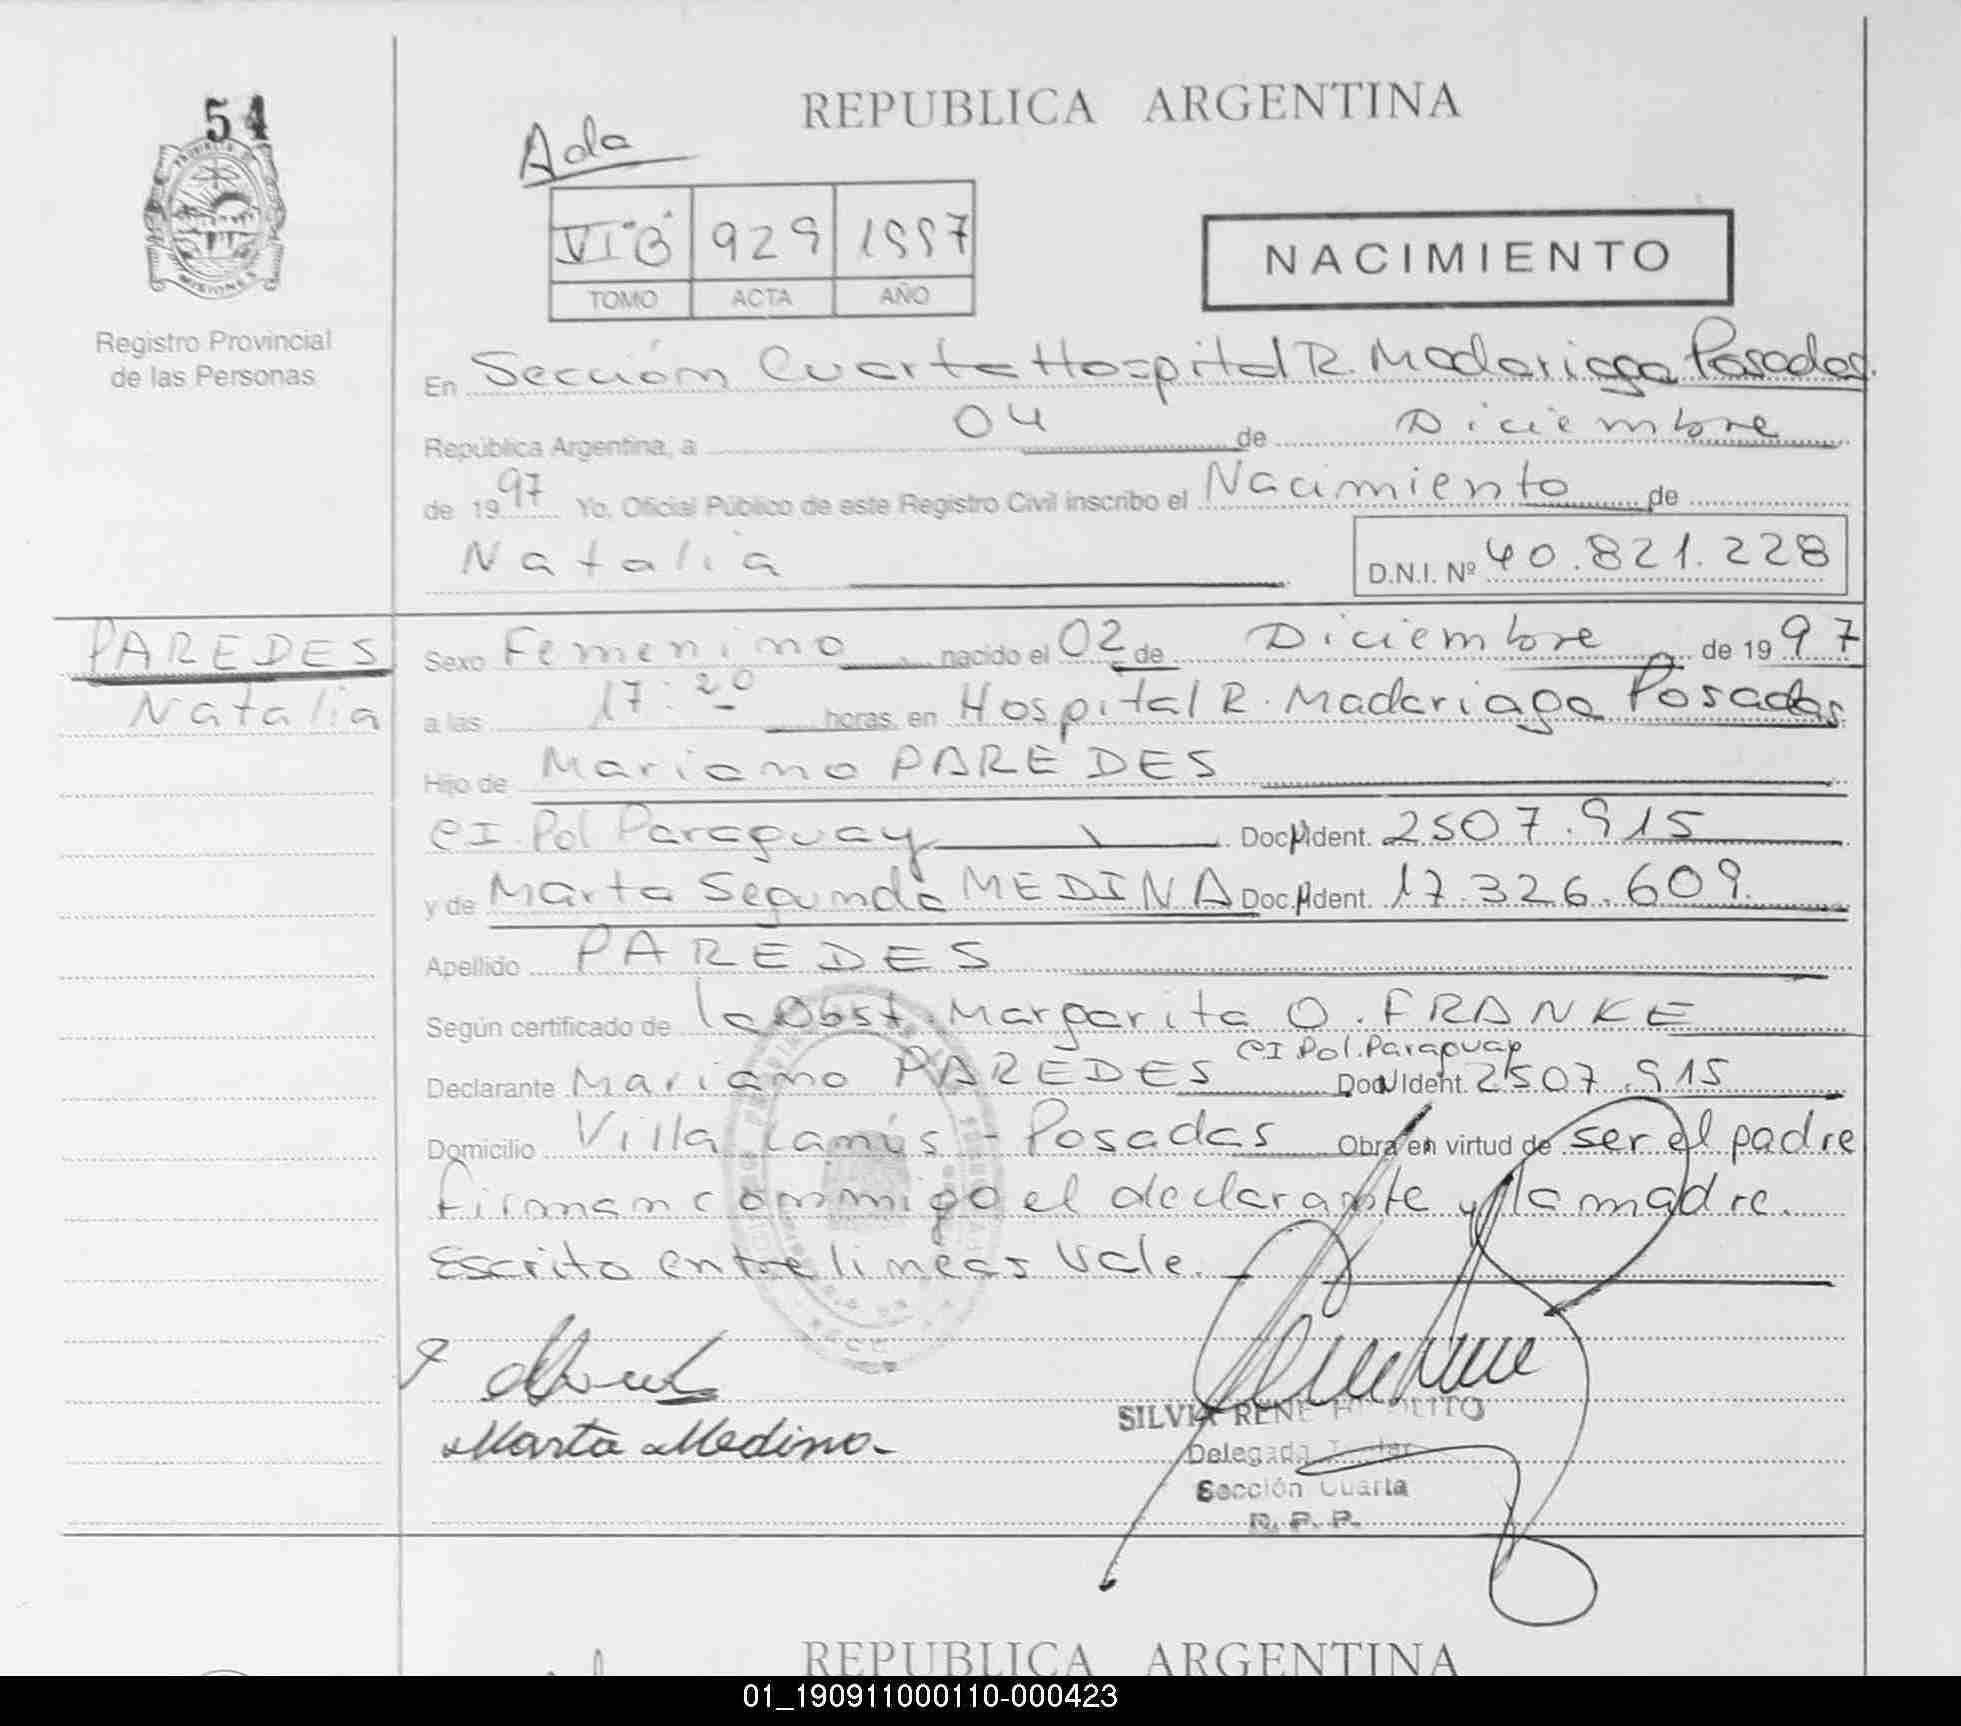 54
PROVINCIA DE
MISIONES
Registro Provincial
de las Personas
REPUBLICA ARGENTINA
Ada
VI "B" 929 1997
TOMO ACTA AÑO
NACIMIENTO
En Sección Cuarta Hospital R. Madariaga Posadas.
República Argentina, a 04 de Diciembre
de 1997 Yo, Oficial Público de este Registro Civil inscribo el Nacimiento de
Natalia D.N.I. Nº 40.821.228
PAREDES
Natalia
Sexo Femenino, nacido el 02 de Diciembre de 1997
a las 17:20 horas, en Hospital R. Madariaga Posadas
Hijo de Mariano PAREDES
CI. Pol Paraguay Doc. Ident. 2507.915
y de Marta Segunda MEDINA Doc. Ident. 17.326.609.
Apellido PAREDES
Según certificado de la Obst. Margarita O. FRANKE
CI Pol. Paraguay
Declarante Mariano PAREDES Doc. Ident. 2507.915
Domicilio Villa Lanús - Posadas Obra en virtud de ser el padre
firman conmigo el declarante y la madre.
Escrito entre lineas Vale.
Marta Medina
SILVIA RENE HIPOLITO
Delegada Titular
Sección Cuarta
R. P. P.
REPUBLICA ARGENTINA
01_190911000110-000423